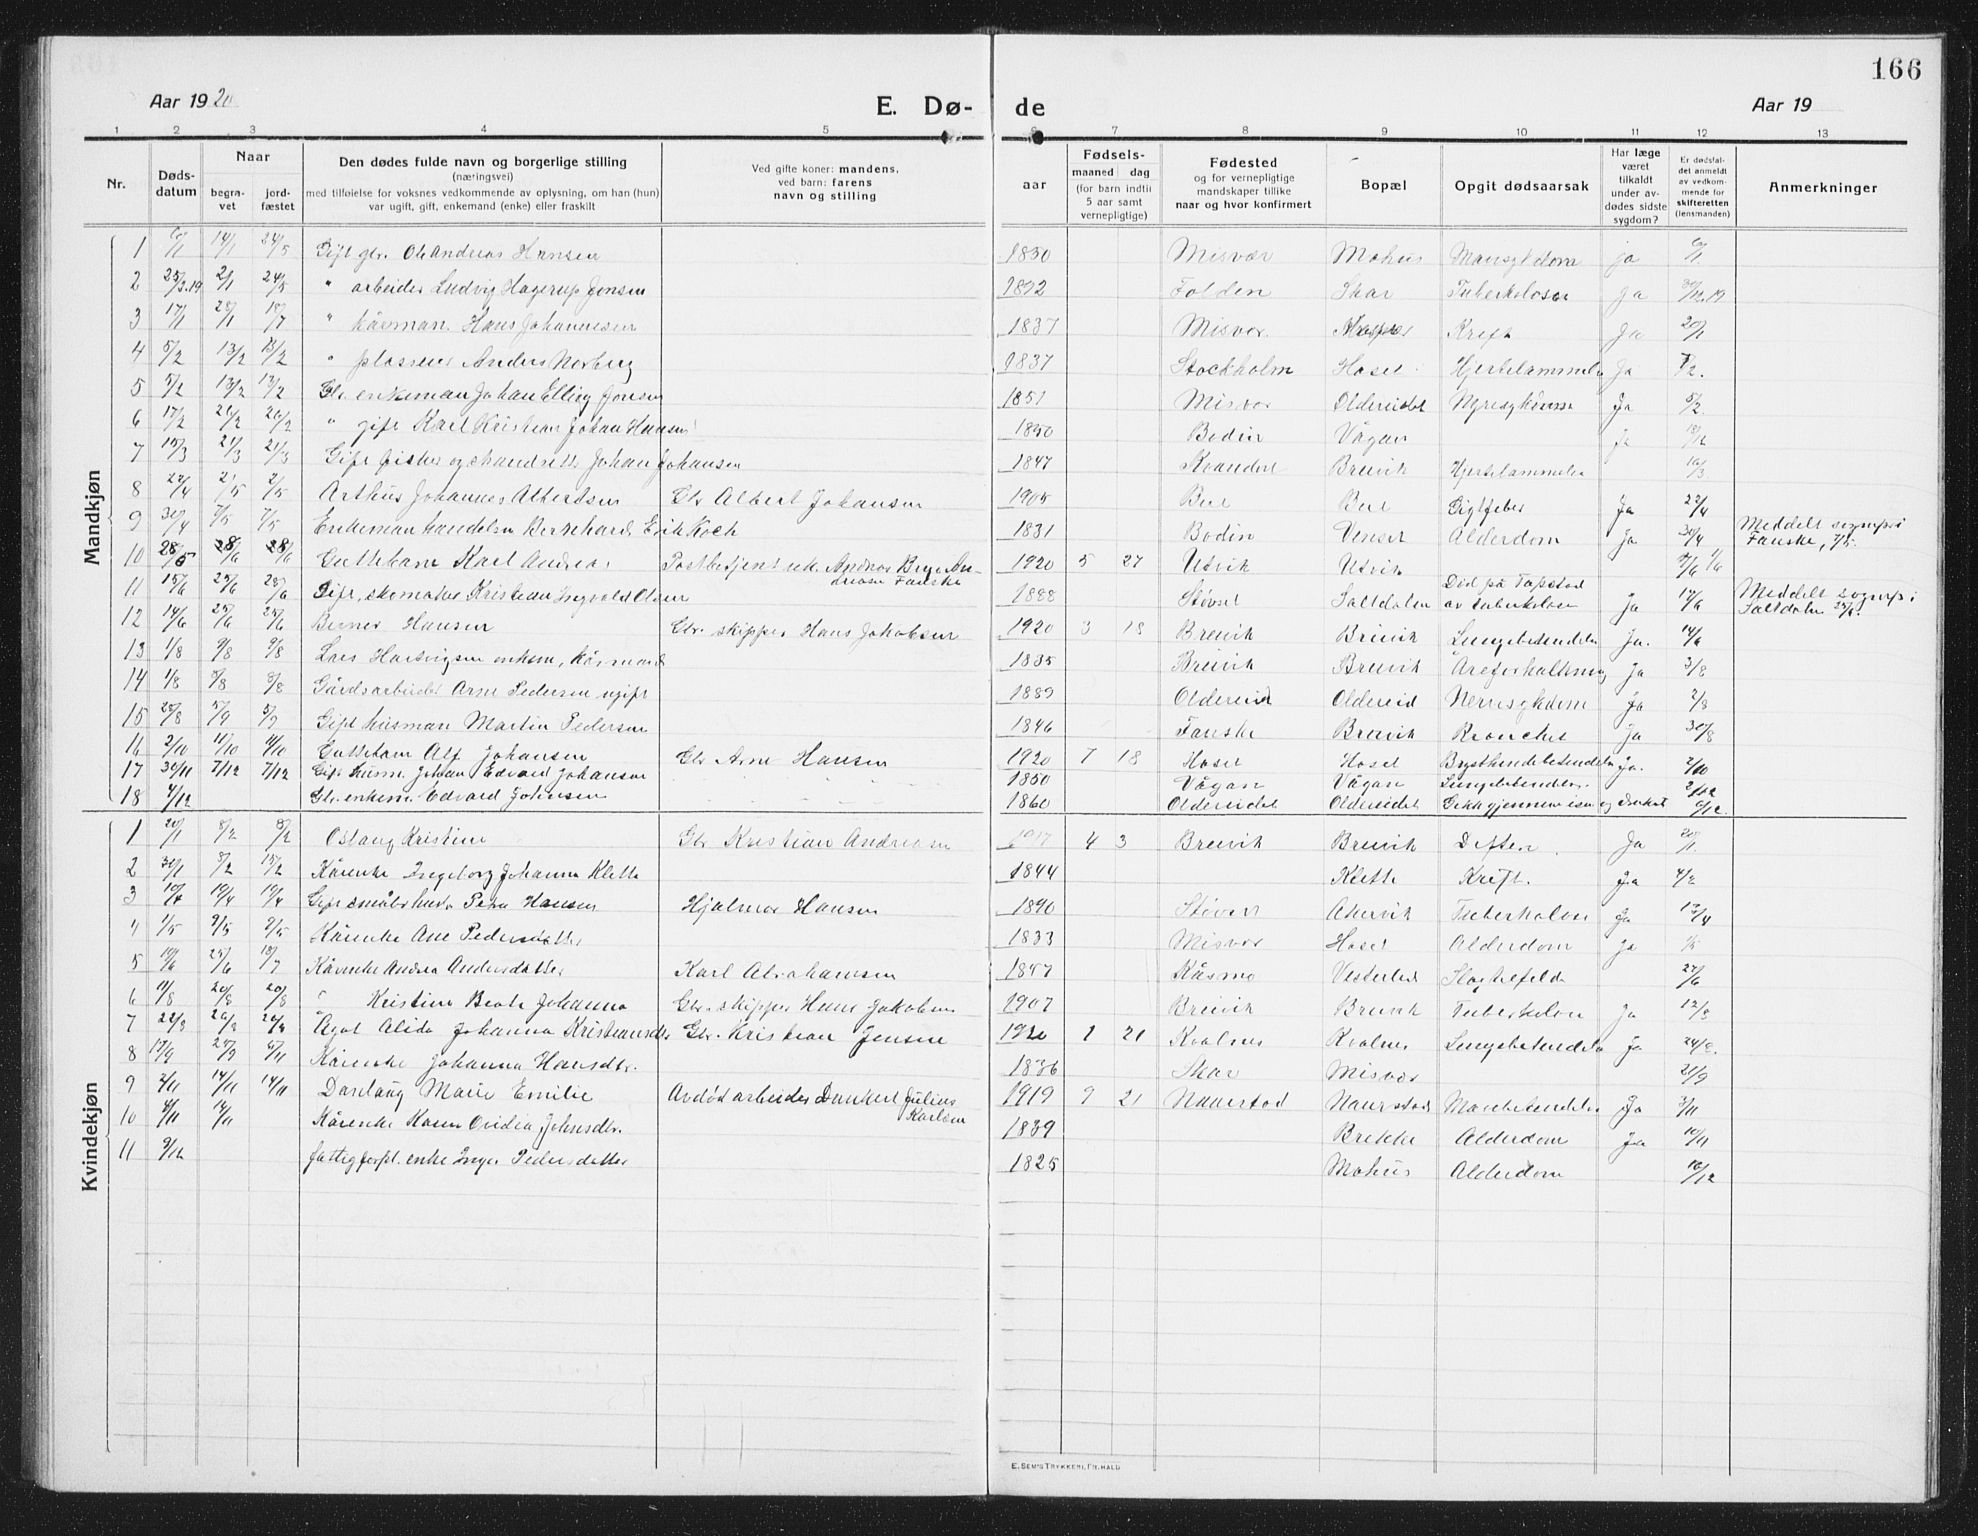 166
Aar 1920
E. Dø-
de
Aar 19
1 2 3 4 5 6 7 8 9 10 11 12 13
Nr.
Døds-
datum
Naar
begra-
vet
jord-
fæstet
Den dødes fulde navn og borgerlige stilling
(næringsvei)
med tilføielse for voksnes vedkommende av oplysning, om han (hun)
var ugift, gift, enkemand (enke) eller fraskilt
Ved gifte koner: mandens,
ved barn: farens
navn og stilling
aar
Fødsels-
maaned dag
(for barn indtil
5 aar samt
vernepligtige)
Fødested
og for vernepligtige
mandskaper tillike
naar og hvor konfirmert
Bopæl
Opgit dødsaarsak
Har læge
været
tilkaldt
under av-
dødes sidste
sygdom?
Er dødsfal-
det anmeldt
av vedkom-
mende for
skifteretten
(lensmanden)
Anmerkninger
Mandkjøn
1 14/1 24/5 Gift gbr. Ole Andreas Hansen 1850 Misvær Mohus Mavesykdom ja
2 2/1 24/5 " arbeider Ludvig Hagerup Jonsen 1892 Folden Skar Tuberkulose Ja 30/12.19
3 17/1 28/1 18/7 " kårman. Hans Johannesen 1837 Misvær Kreft Ja 20/1
4 5/2 13/2 13/2 " Anders Norberg 1837 Stockholm Hoset Hjertelammelse Ja
5 5/2 13/2 13/2 Gbr. enkeman Johan Elling Jonsen 1851 Misvær Oldereidet Nyresykdom Ja 5/2.
6 17/2 20/2 20/2 " gift Karl Kristian Johan Hansen 1850 Bodin Vågan ja
7 15/3 21/3 21/3 Gift fisker og Johan Johansen 1847 Breivik Hjertelammelse 16/3
8 27/4 2/5 2/5 Arthur Johannes Albertsen Gbr Albert Johansen 1905 Gigtfeber Ja 27/4
9 30/4 7/5 7/5 Enkeman handelsm Bernhard Erik Koch 1831 Bodin Venset Alderdom ja 30/4 Meddelt sognepr i
Fauske, 7/5.
10 28/5 28/6 28/6 Guttebarn Karl Andreas 1920 5 27 Utvik Utvik
11 15/6 25/6 25/6 Gift, skomaker Kristian Ingvald Olsen 1888 Støvset Saltdalen Død på Topstad
av tuberkulose Ja 17/6 Meddelt sognepr i
Saltdalen
12 14/6 25/6 25/6 Berner Hansen Gbr. skipper Hans Jakobsen 1920 3 18 Breivik Breivik Lungebetendelse Ja. 14/6
13 1/8 9/8 9/8 Lars Hartvigsen enkem, kårmand 1835 Breivik Breivik Åreforkalkning Ja 3/8
14 1/8 8/8 8/8 Gårdsarbeider Arne Pedersen ugift 1889 Oldereid Oldereid Nervesykdom Ja 2/8
15 28/8 5/9 5/9 Gift husman Martin Pedersen 1846 Fauske Breivik Bronchit Ja 30/8
16 2/10 11/10 11/10 Guttebarn Alf Johansen Gbr Arne Hansen 1920 7 18 Hoset Hoset Brysthindebetendelse Ja. 2/10
17 30/11 7/12 7/12 Gift husm. Johan Edvard Johansen 1850 Vågan Vågan Lungebetendelse. 2/12
18 4/12 Gbr. enkem. Edvard Johnsen 1860 Oldereidet Oldereidet Gekk gjennem isen og druknet 6/12.
Kvindekjøn
1 20/1 8/2 8/2 Oslaug Kristine Gbr Kristian Andreasen 1917 4 3 Breivik Breivik Difteri. Ja 20/1
2 30/1 8/2 15/2 Kårenke Ingeborg Johanna Klette 1844 Klette Kreft. Ja 4/2
3 10/4 19/4 19/4 Gift småbr.hustr Pera Hansen Hjalmar Hansen 1890 Støvset Åkervik Tuberkulose Ja 13/4
4 1/5 9/5 9/5 Kårenke Ane Pedersdatter 1833 Misvær Hoset Alderdom Ja
5 19/6 25/6 18/7 Kårenke Andrea Andersdatter Karl Abrahamsen 1847 Kåsmo Vesterli Slagtilfelde 27/6
6 11/8 20/8 20/8 Kristine Beate Johanna Gbr. skipper Hans Jakobsen 1907 Breivik Breivik Tuberkulose Ja 12/8
7 22/8 Ågot Alida Johanna Kristiansdtr Gbr. Kristian Jensen 1920 1 21 Kvalnes Kvalnes Lungebetendelse Ja 24/8.
8 17/9 27/9 Kårenke Johanna Hansdtr. 1836 Skar Misvær 21/9
9 2/11 14/11 14/11 Dordaug Marie Emilie Avdød arbeider Dunkert Julius
Karlsen 1919 9 21 Naurstad Naurstad Mavebetendelse Ja 3/11
10 4/11 14/11 Kårenke Karen Ovidia Johnsdtr. 1839 Brekke Alderdom Ja 10/11
11 9/12 fattigforpl. enke Inger Pedersdatter 1825 Mohus Alderdom 10/12
E. SEM'S TRYKKERI, FR. HALD